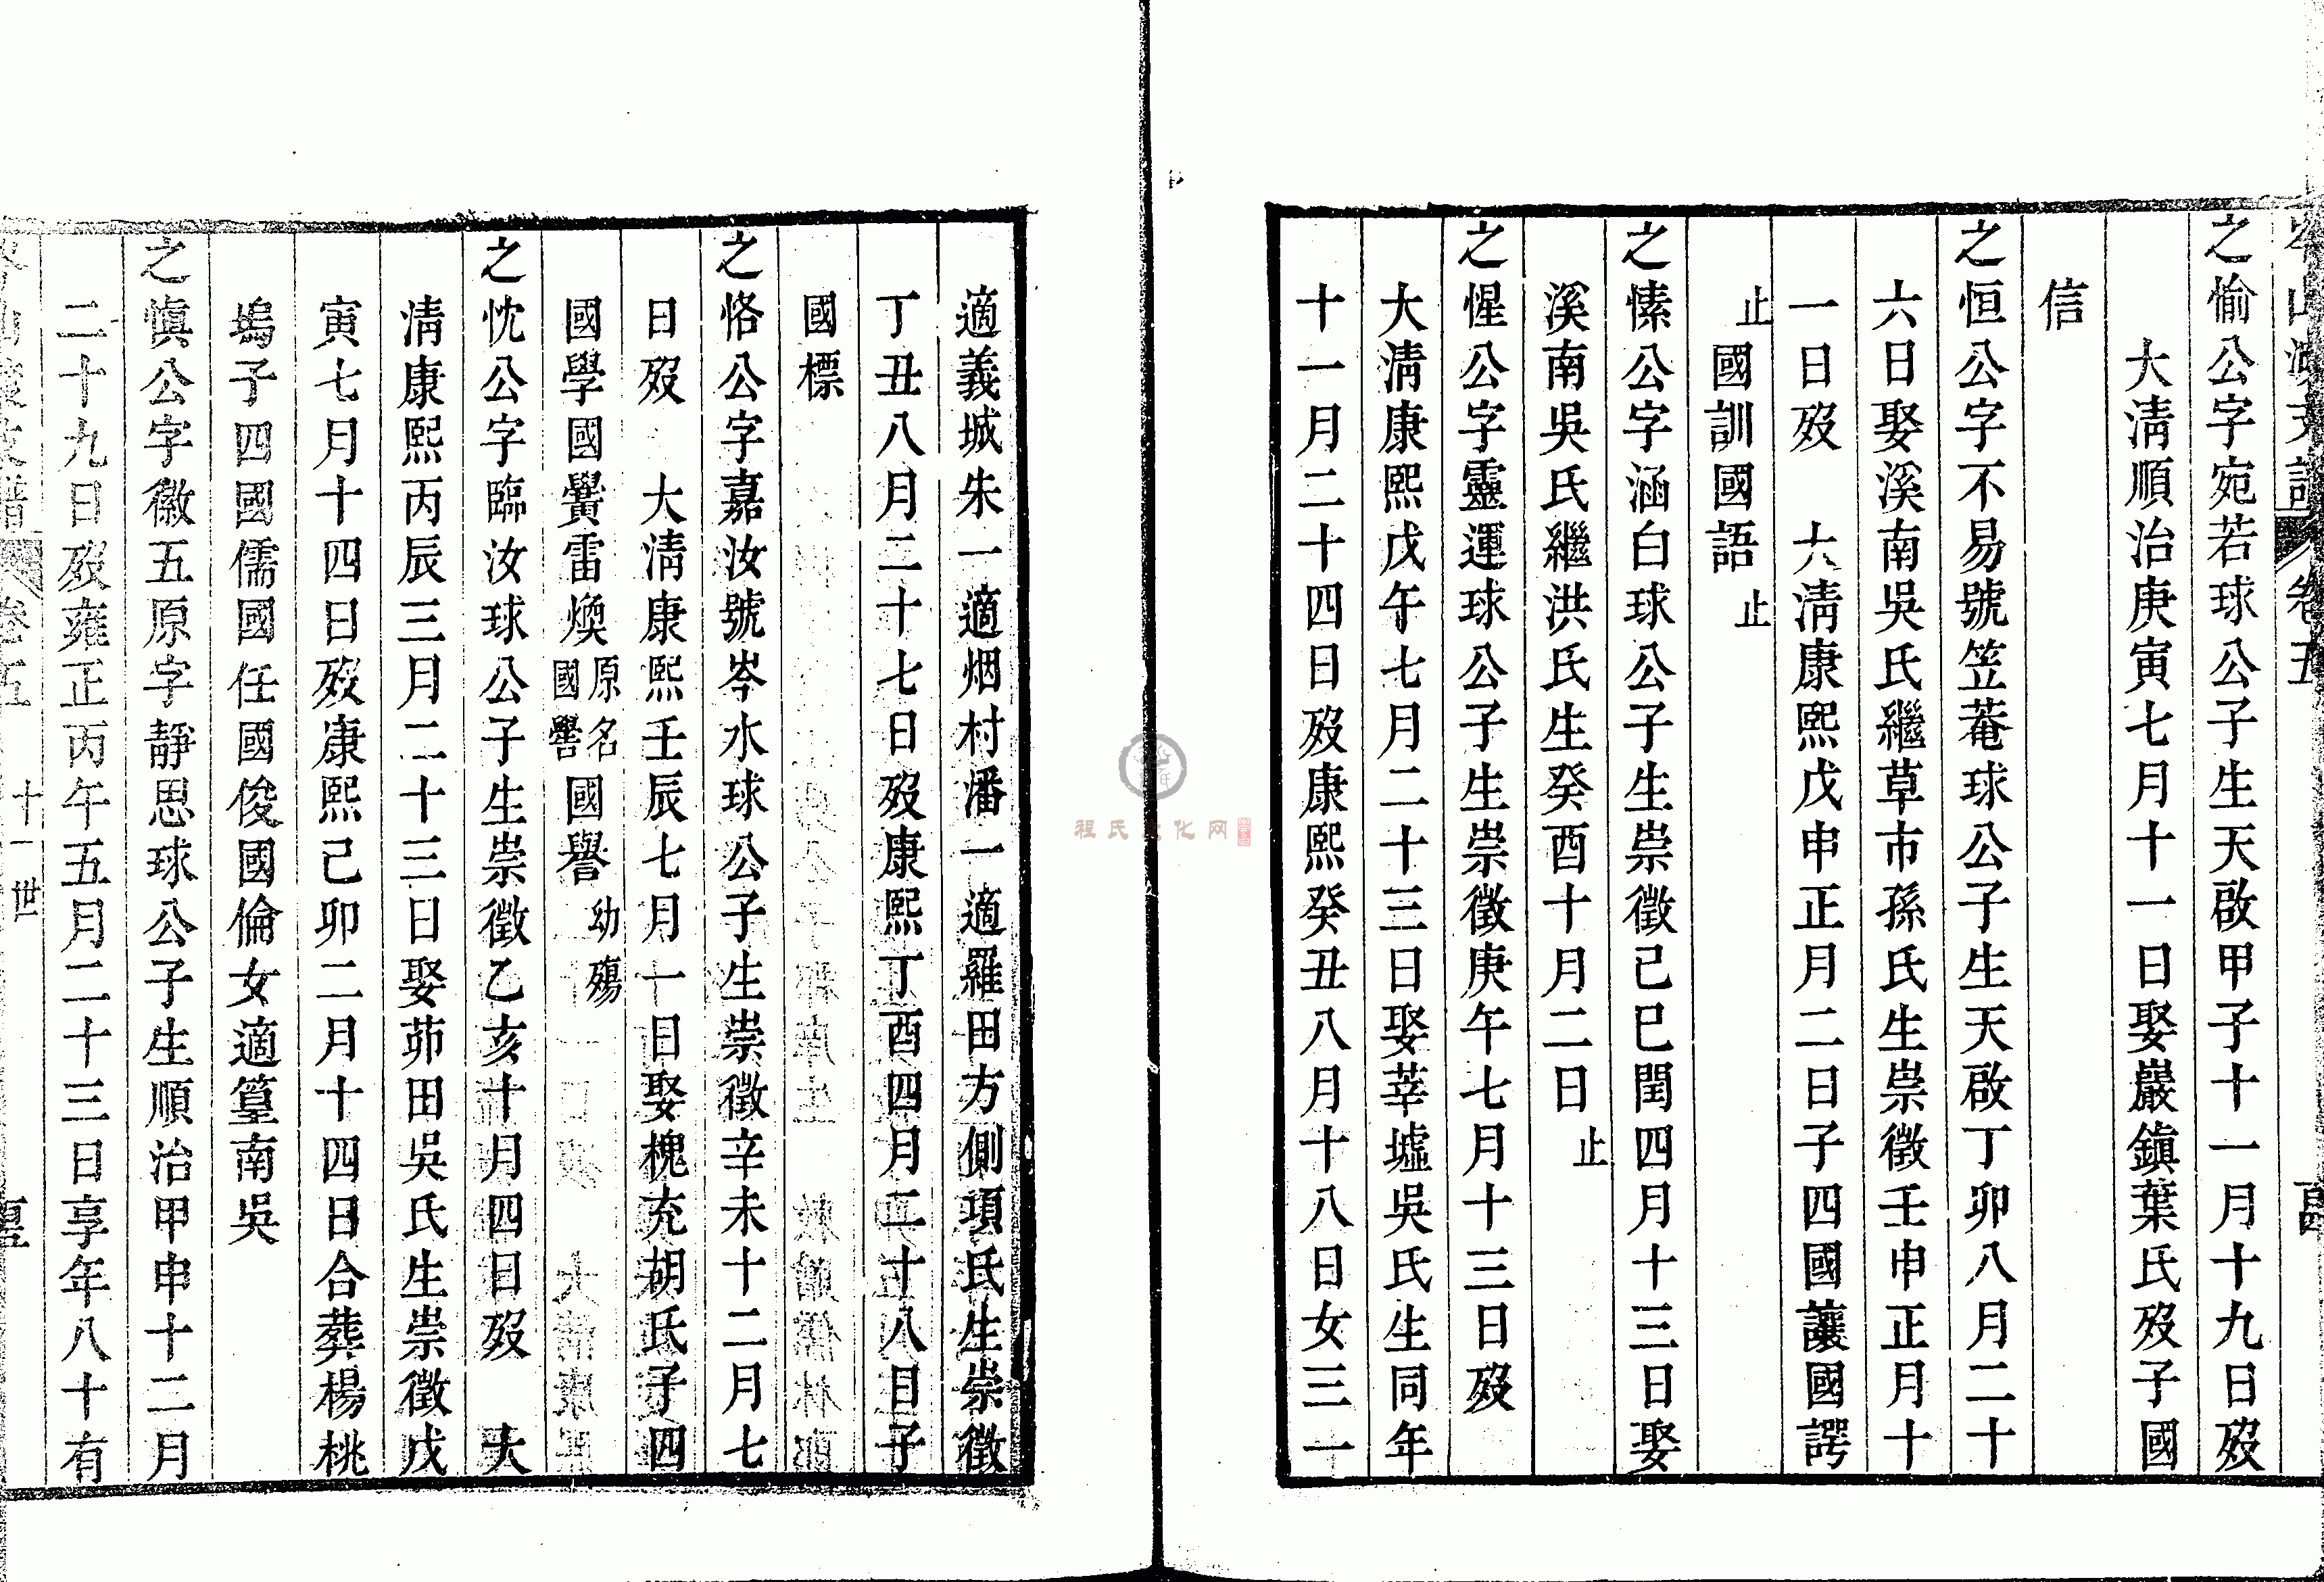 卷五
之愉公字宛若球公子生天啟甲子十一月十九日歿
大淸順治庚寅七月十一日娶巖鎮葉氏歿子國
信
之恒公字不易號笠菴球公子生天啟丁卯八月二十
六日娶溪南吳氏繼草市孫氏生崇徵壬申正月十
一日歿 大淸康熙戊申正月二日子四國讓國諤
止國訓國語止
之愫公字涵白球公子生崇徵己巳閏四月十三日娶
溪南吳氏繼洪氏生癸酉十月二日止
之惺公字靈運球公子生崇徵庚午七月十三日歿
大淸康熙戊午七月二十三日娶莘墟吳氏生同年
十一月二十四日歿康熙癸丑八月十八日女三一
適義城朱一適烟村潘一適羅田方側項氏生崇徵
丁丑八月二十七日歿康熙丁酉四月二十八日子
國標
之恪公字嘉汝號岑水球公子生崇徵辛未十二月七
日歿 大淸康熙壬辰七月一日娶槐充胡氏子四
國學國黌雷煥原名國譽國譽幼殤
之忱公字臨汝球公子生崇徵乙亥十月四日歿 大
淸康熙丙辰三月二十三日娶茆田吳氏生崇徵戊
寅七月十四日歿康熙己卯二月十四日合葬楊桃
塢子四國儒國任國俊國倫女適篁南吳
之慎公字徽五原字靜思球公子生順治甲申十二月
二十九日歿雍正丙午五月二十三日享年八十有
卷五 十一世
程氏文化网